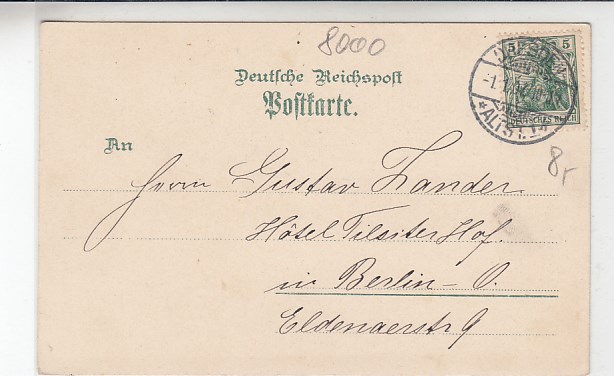 8000
Deutsche Reichspost
Postkarte.
5 5
DEUTSCHES REICH
* ALTST.
8r
An
Herrn Gustav Zander.
Hôtel Tilsiter Hof.
in Berlin-O.
Eldenaerstr 9